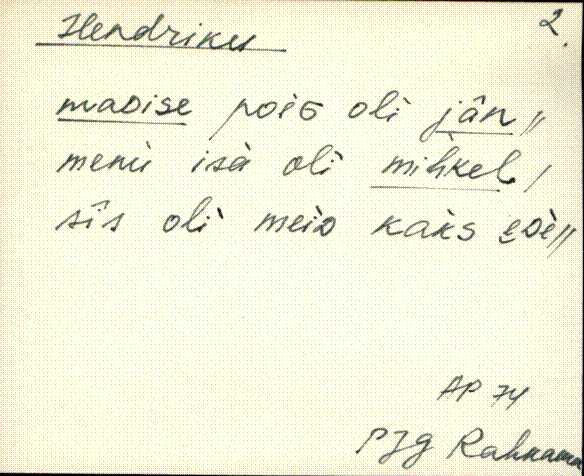 Hendriku 2.
maDise poiG oli jân //
menù isà oli mìhkel, /
sîs oli meiD kaks eDè //
AP 74
PJg Rahkama